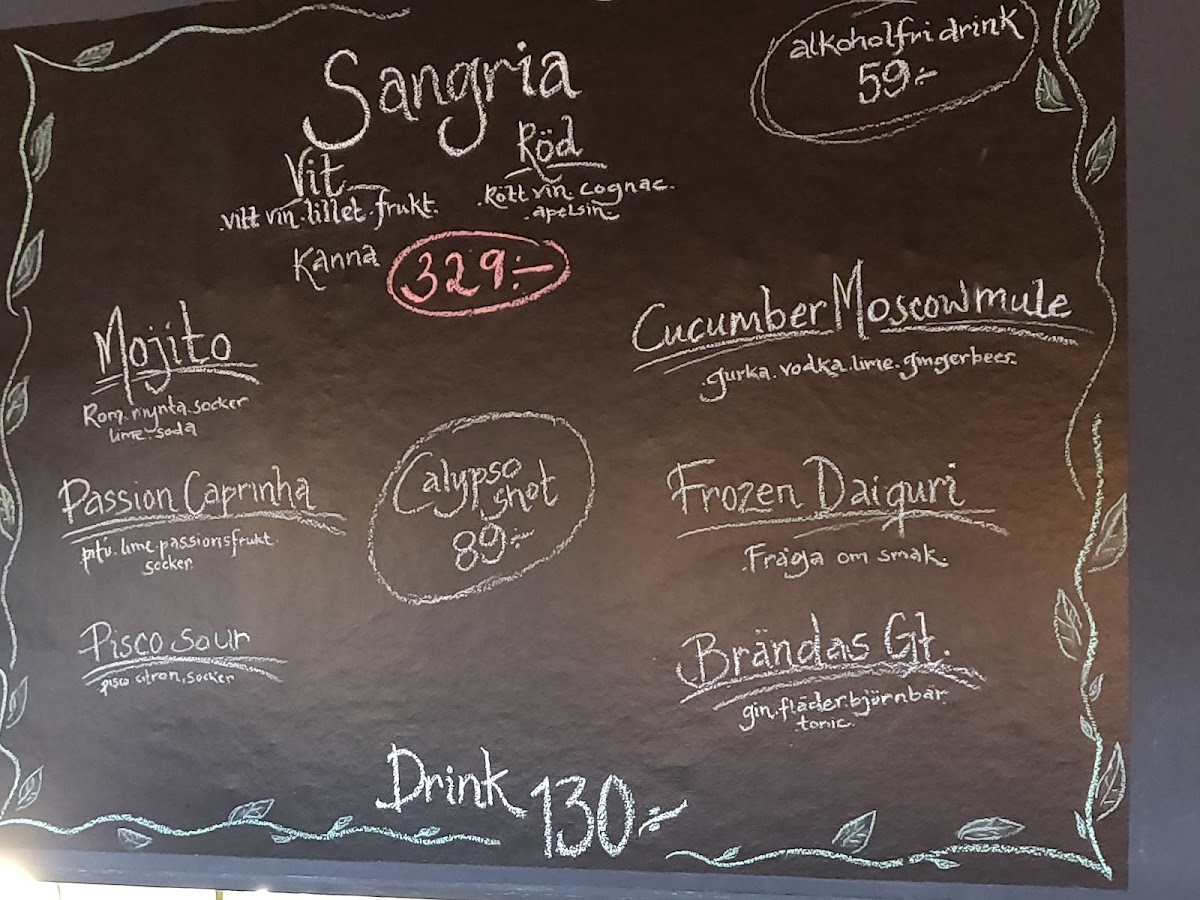 Sangria
alkoholfri drink
59:-
Vit
.vitt vin.lillet.frukt.
Röd
.Rött vin.cognac.
.apelsin.
Kanna 329:-
Mojito
Rom.mynta.socker
lime.soda
Cucumber Moscowmule
.gurka.vodka.lime.gingerbeer.
Passion Caprinha
.pitú.lime.passionsfrukt.
socker.
Calypso
shot
89:-
Frozen Daiquri
.Fråga om smak.
Pisco sour
pisco citron, socker
Brändas Gt.
gin.fläder.björnbär
tonic.
Drink 130:-